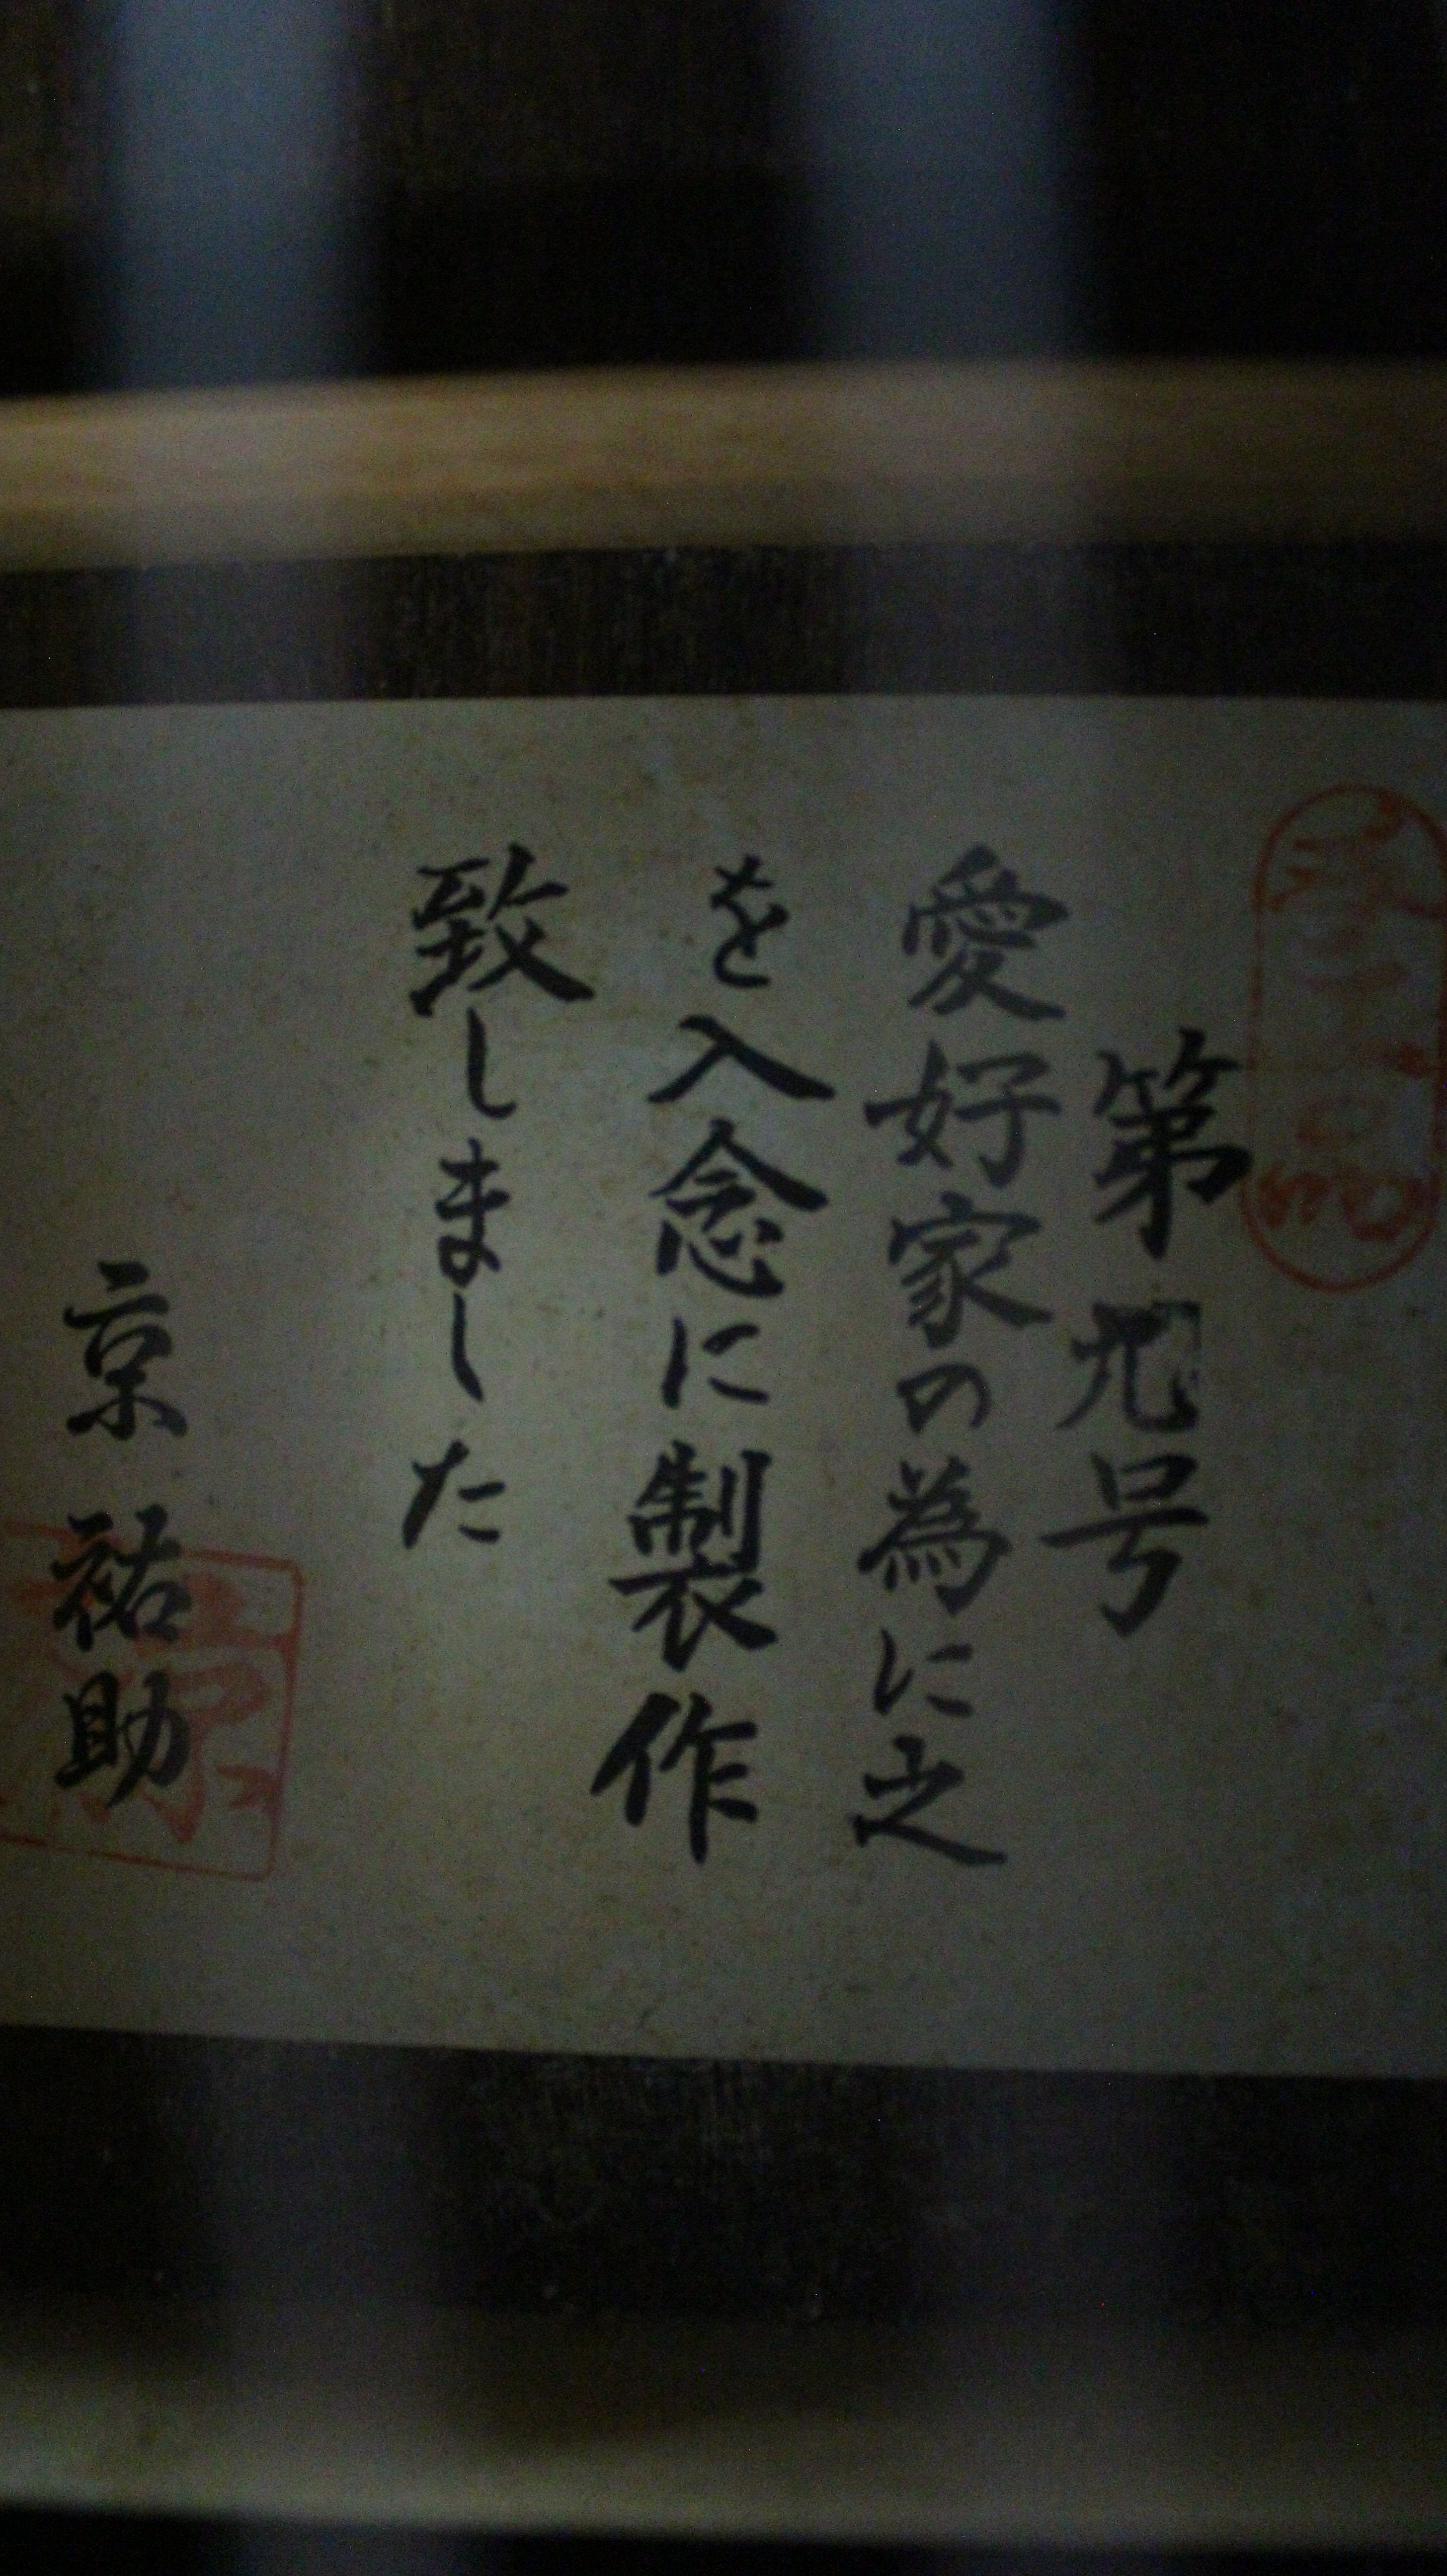 第九号
愛好家の為に之
を入念に製作
致しました
京祐助